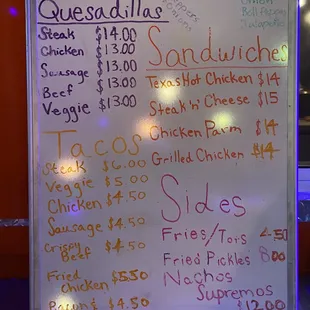 Quesadillas
Steak $14.00
Chicken $13.00
Sausage $13.00
Beef $13.00
Veggie $13.00
Tacos
Steak $6.00
Veggie $5.00
Chicken $4.50
Sausage $4.50
Crispy Beef $4.50
Fried Chicken $5.50
$4.50
peppers
onions
Bell Pepper
Jalapeño
Sandwiches
Texas Hot Chicken $14
Steak 'n' Cheese $15
Chicken Parm $14
Grilled Chicken $14
Sides
Fries/Tots 4.50
Fried Pickles 8.00
Nachos
Supremos
$12.00